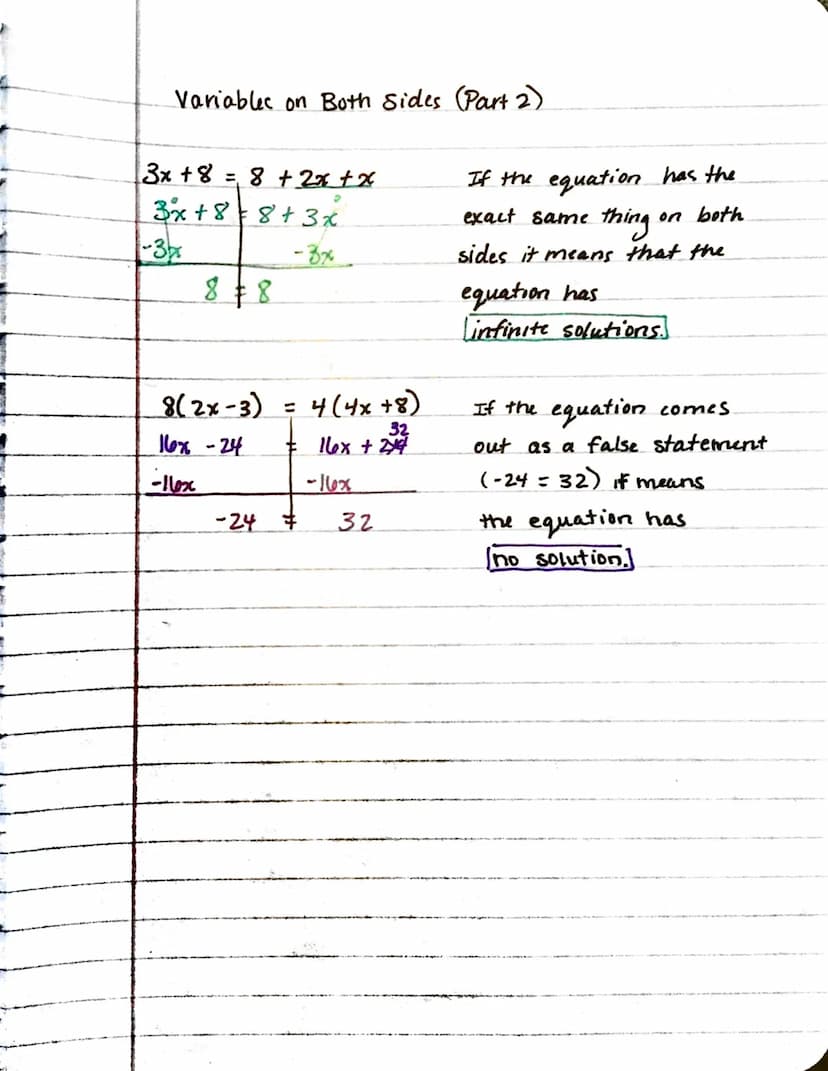 Variables on Both Sides (Part 2)
3x + 8 = 8 + 2x + x
3x + 8 = 8 + 3x
-3x -3x
8 = 8
If the equation has the
exact same thing on both
sides it means that the
equation has
infinite solutions.
8(2x - 3) = 4(4x + 8)
16x - 24 = 16x + 32
-16x -16x
-24 ≠ 32
If the equation comes
out as a false statement
(-24 = 32) it means
the equation has
no solution.